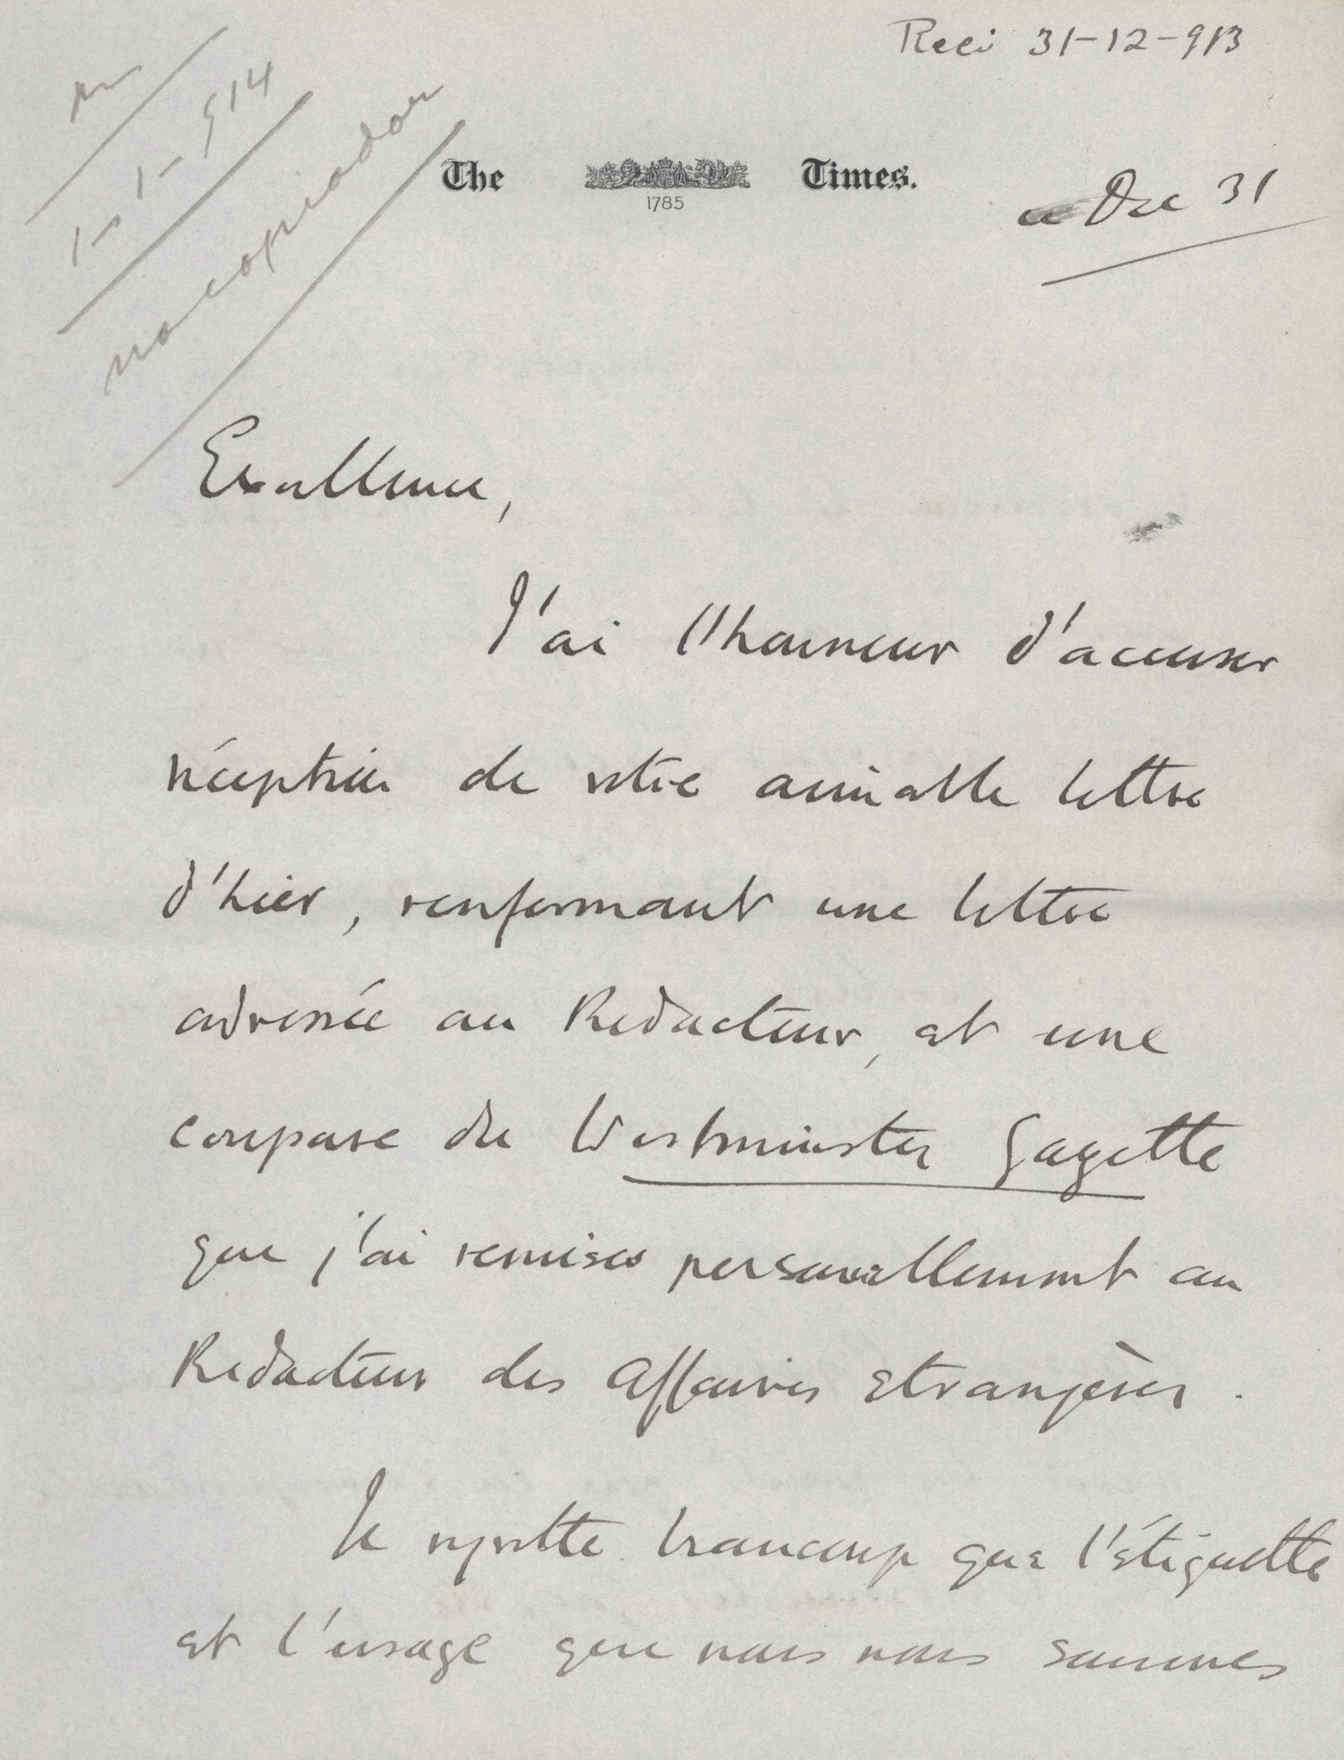 Reci 31-12-913
1-1-914
no copiador
The Times.
1785
ce Dec 31
Excellence,
J'ai l'honneur d'accuser
réception de votre aimable lettre
d'hier, renfermant une lettre
adressée au Redacteur, et une
coupure du Westminster Gazette
que j'ai remises personellement au
Redacteur des Affaires etrangères.
Je regrette beaucoup que l'étiquette
et l'usage que nous nous sommes